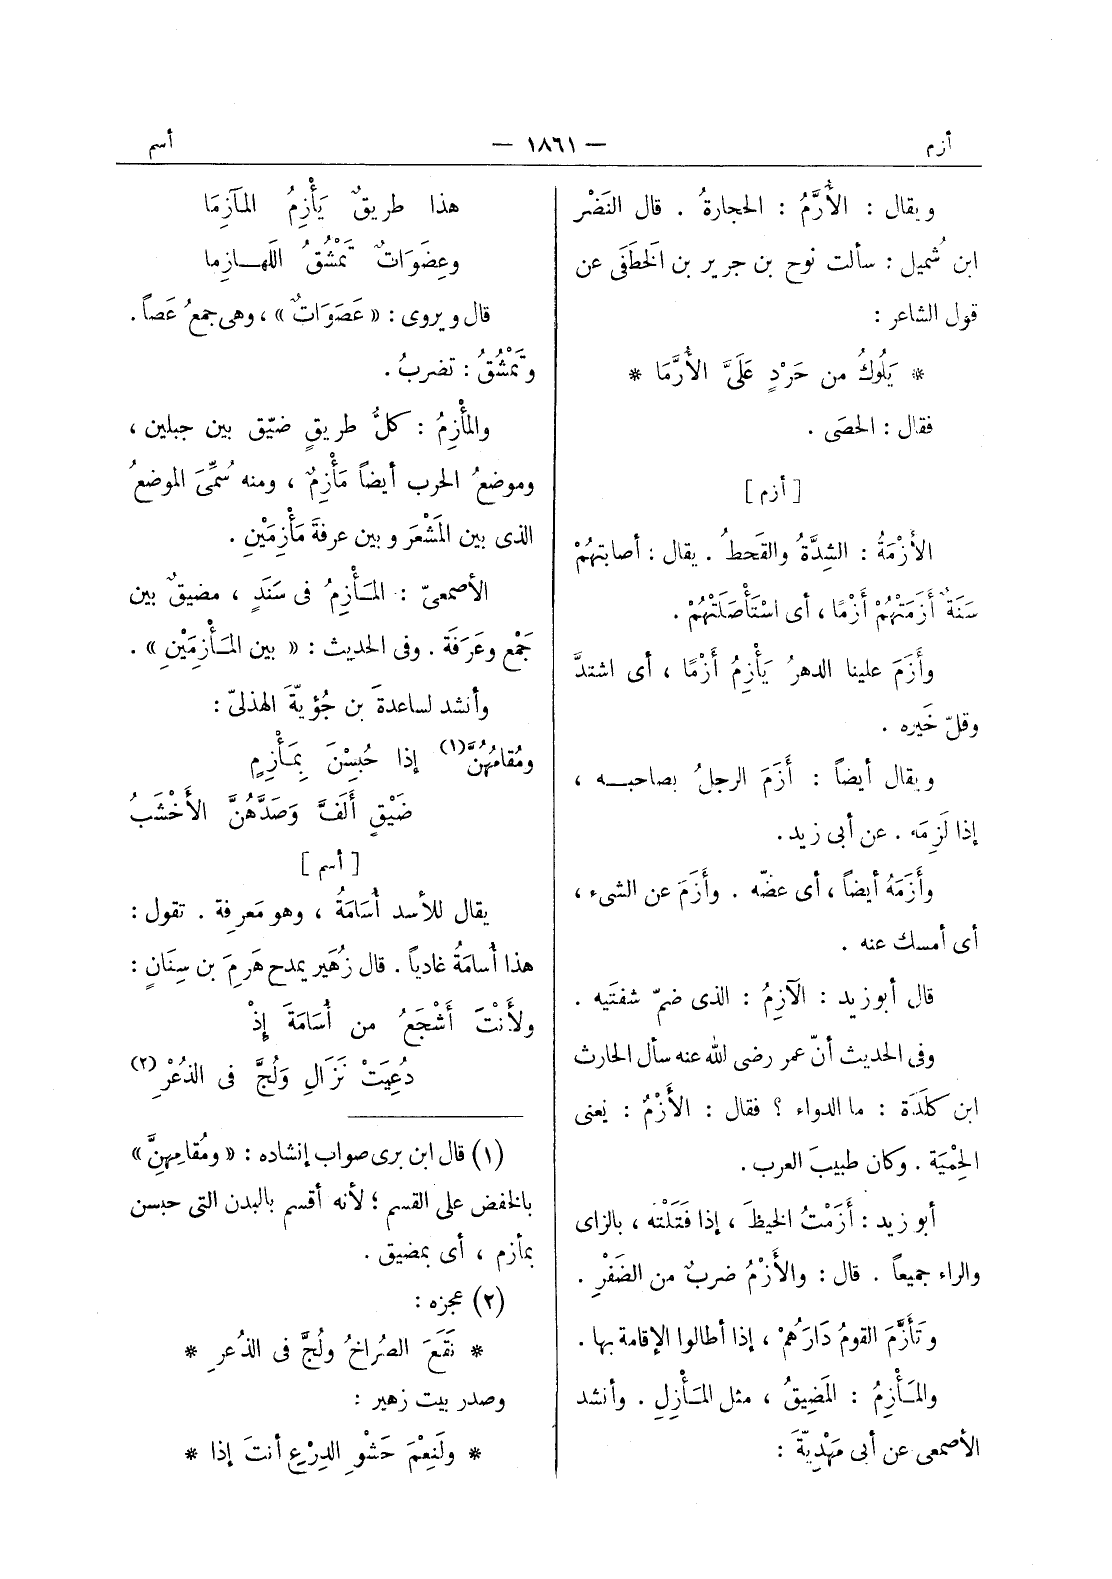 أزم
— ١٨٦١ —
أسم
ويقال : الأُرَّمُ : الحجارةُ . قال النَضْر
ابن شُميل : سألت نوح بن جرير بن الخَطَفَى عن
قول الشاعر :
* يَلُوكُ من حَرْدٍ عَلَىَّ الأُرَّمَا *
فقال : الحصَى .
[ أزم ]
الأَزْمَةُ : الشِدَّةُ والقَحطُ . يقال : أصابتهُمْ
سَنَةٌ أَزَمَتْهُمْ أَزْمًا ، أى اسْتَأْصَلَتْهُمْ .
وأَزَمَ علينا الدهرُ يَأْزِمُ أَزْمًا ، أى اشتدَّ
وقلّ خَيره .
ويقال أيضاً : أَزَمَ الرجلُ بصاحبـه ،
إذا لَزِمَه . عن أبى زيد .
وأَزَمَهُ أيضاً ، أى عضّه . وأَزَمَ عن الشىء ،
أى أمسك عنه .
قال أبو زيد : الآزِمُ : الذى ضمّ شفتَيه .
وفى الحديث أنّ عمر رضى الله عنه سأل الحارث
ابن كلَدَة : ما الدواء ؟ فقال : الأَزْمُ : يعنى
الحِمْيَة . وكان طبيبَ العرب .
أبو زيد : أَزَمْتُ الخيطَ ، إذا فَتَلْتَه ، بالزاى
والراء جميعاً . قال : والأَزْمُ ضربٌ من الضَفْرِ .
وتَأَزَّمَ القومُ دَارَهُمْ ، إذا أطالوا الإقامة بها .
والمَـأْزِمُ : المَضِيقُ ، مثل المَـأْزِلِ . وأنشد
الأصمعى عن أبى مَهْدِيّةَ :
هذا طريقٌ يَأْزِمُ المَآزِمَا
وعِضَوَاتٌ تَمْشُقُ اللَهـازِما
قال ويروى : « عَصَوَاتٌ » ، وهى جمعُ عَصاً .
وتَمْشُقُ : تضربُ .
والمأْزِمُ : كلُّ طريقٍ ضيّق بين جبلين ،
وموضعُ الحرب أيضاً مَأْزِمٌ ، ومنه سُمِّىَ الموضعُ
الذى بين المَشْعَرِ وبين عرفةَ مَأْزِمَيْنِ .
الأصمعىّ : المَـأْزِمُ فى سَنَدٍ ، مضيقٌ بين
جَمْعٍ وعَرَفَة . وفى الحديث : « بين المَـأْزِمَيْنِ » .
وأنشد لساعدةَ بن جُؤيّةَ الهذلىّ :
ومُقامُهُنَّ(١) إذا حُبِسْنَ بِمَـأْزِمٍ
ضَيْقٍ أَلَفَّ وَصَدَّهُنَّ الأَخْشَبُ
[ أسم ]
يقال للأسد أُسَامَةُ ، وهو مَعرفة . تقول :
هذا أُسامَةُ غادياً . قال زُهَير يمدح هَرِمَ بن سِنَانٍ :
ولأَنْتَ أَشْجَعُ من أُسَامَةَ إذْ
دُعِيَتْ نَزَالِ وَلُجَّ فى الذُعْرِ(٢)
(١) قال ابن برى صواب إنشاده : « ومُقامِهنَّ »
بالخفض على القسم ؛ لأنه أقسم بالبدن التى حبسن
بمأزم ، أى بمضيق .
(٢) عجزه :
* نَقَعَ الصُراخُ ولُجَّ فى الذُعرِ *
وصدر بيت زهير :
* ولَنِعْمَ حَشْوِ الدِرْعِ أنتَ إذا *